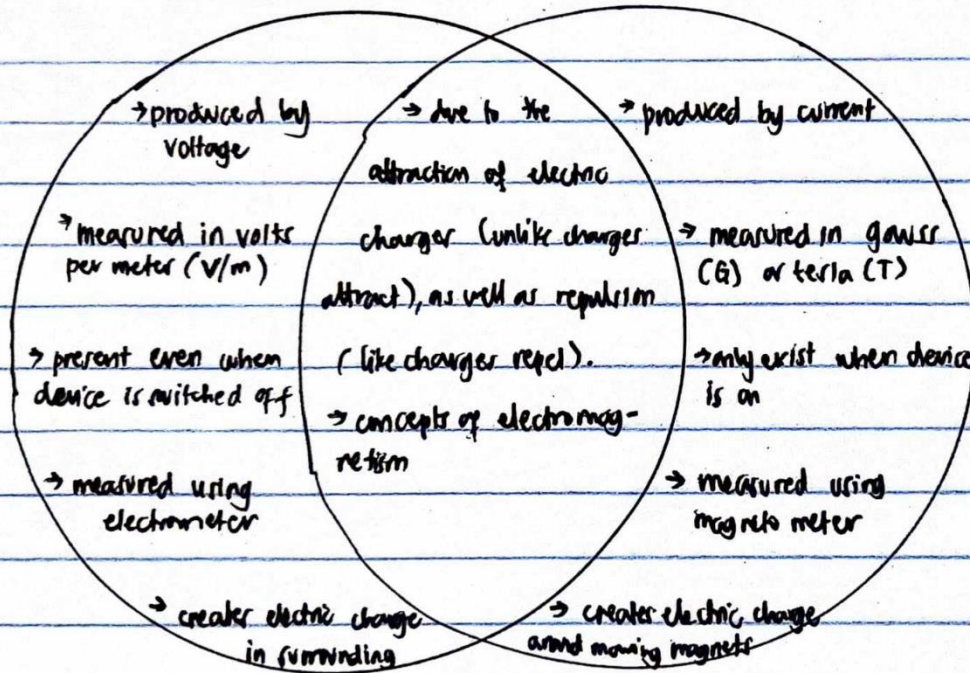 → produced by
voltage
→ measured in volts
per meter (V/m)
→ present even when
device is switched off
→ measured using
electrometer
→ creates electric charge
in surrounding
→ due to the
attraction of electric
charges (unlike charges
attract), as well as repulsion
(like charges repel).
→ concepts of electromag-
netism
→ produced by current
→ measured in gauss
(G) or tesla (T)
→ only exist when device
is on
→ measured using
magneto meter
→ creates electric charge
around moving magnets